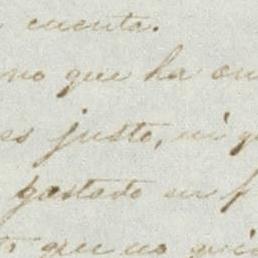 cuenta.
no que ha
es justo, ni
gastado en
que no